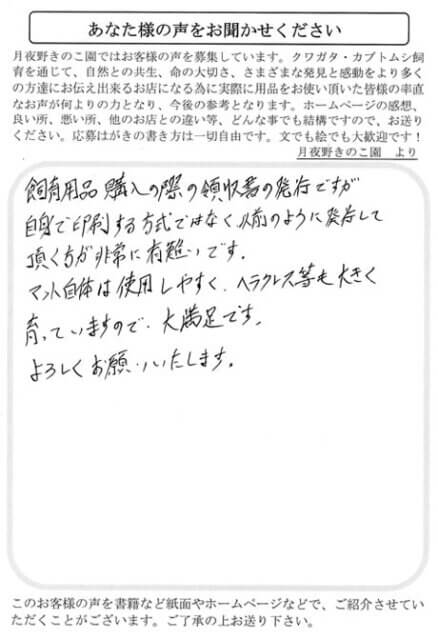 あなた様の声をお聞かせください
月夜野きのこ園ではお客様の声を募集しています。クワガタ・カブトムシ飼
育を通じて、自然との共生、命の大切さ、さまざまな発見と感動をより多く
の方達にお伝え出来るお店になる為に実際に用品をお使い頂いた皆様の率直
なお声が何よりの力となり、今後の参考となります。ホームページの感想、
良い所、悪い所、他のお店との違い等、どんな事でも結構ですので、お送り
ください。応募はがきの書き方は一切自由です。文でも絵でも大歓迎です！
月夜野きのこ園　より
飼育用品購入の際の領収書の発行ですが
自身で印刷する方式ではなく以前のように発行して
頂く方が非常に有難いです。
マット自体は使用しやすく、ヘラクレス等も大きく
育っていますので、大満足です。
よろしくお願いいたします。
このお客様の声を書籍など紙面やホームページなどで、ご紹介させてい
ただくことがございます。ご了承の上お送り下さい。